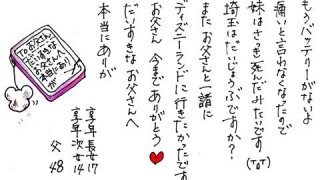 もうバッテリーがないよ
痛いと言わなくなったので
妹はさっき死んだみたいです(ToT)
埼玉はだいじょうぶですか?
またお父さんと一緒に
ディズニーランドに行きたかったです
お父さん 今までありがとう♥
だいすきなお父さんへ
本当にありが
享年 長女17
享年 次女14
父 48